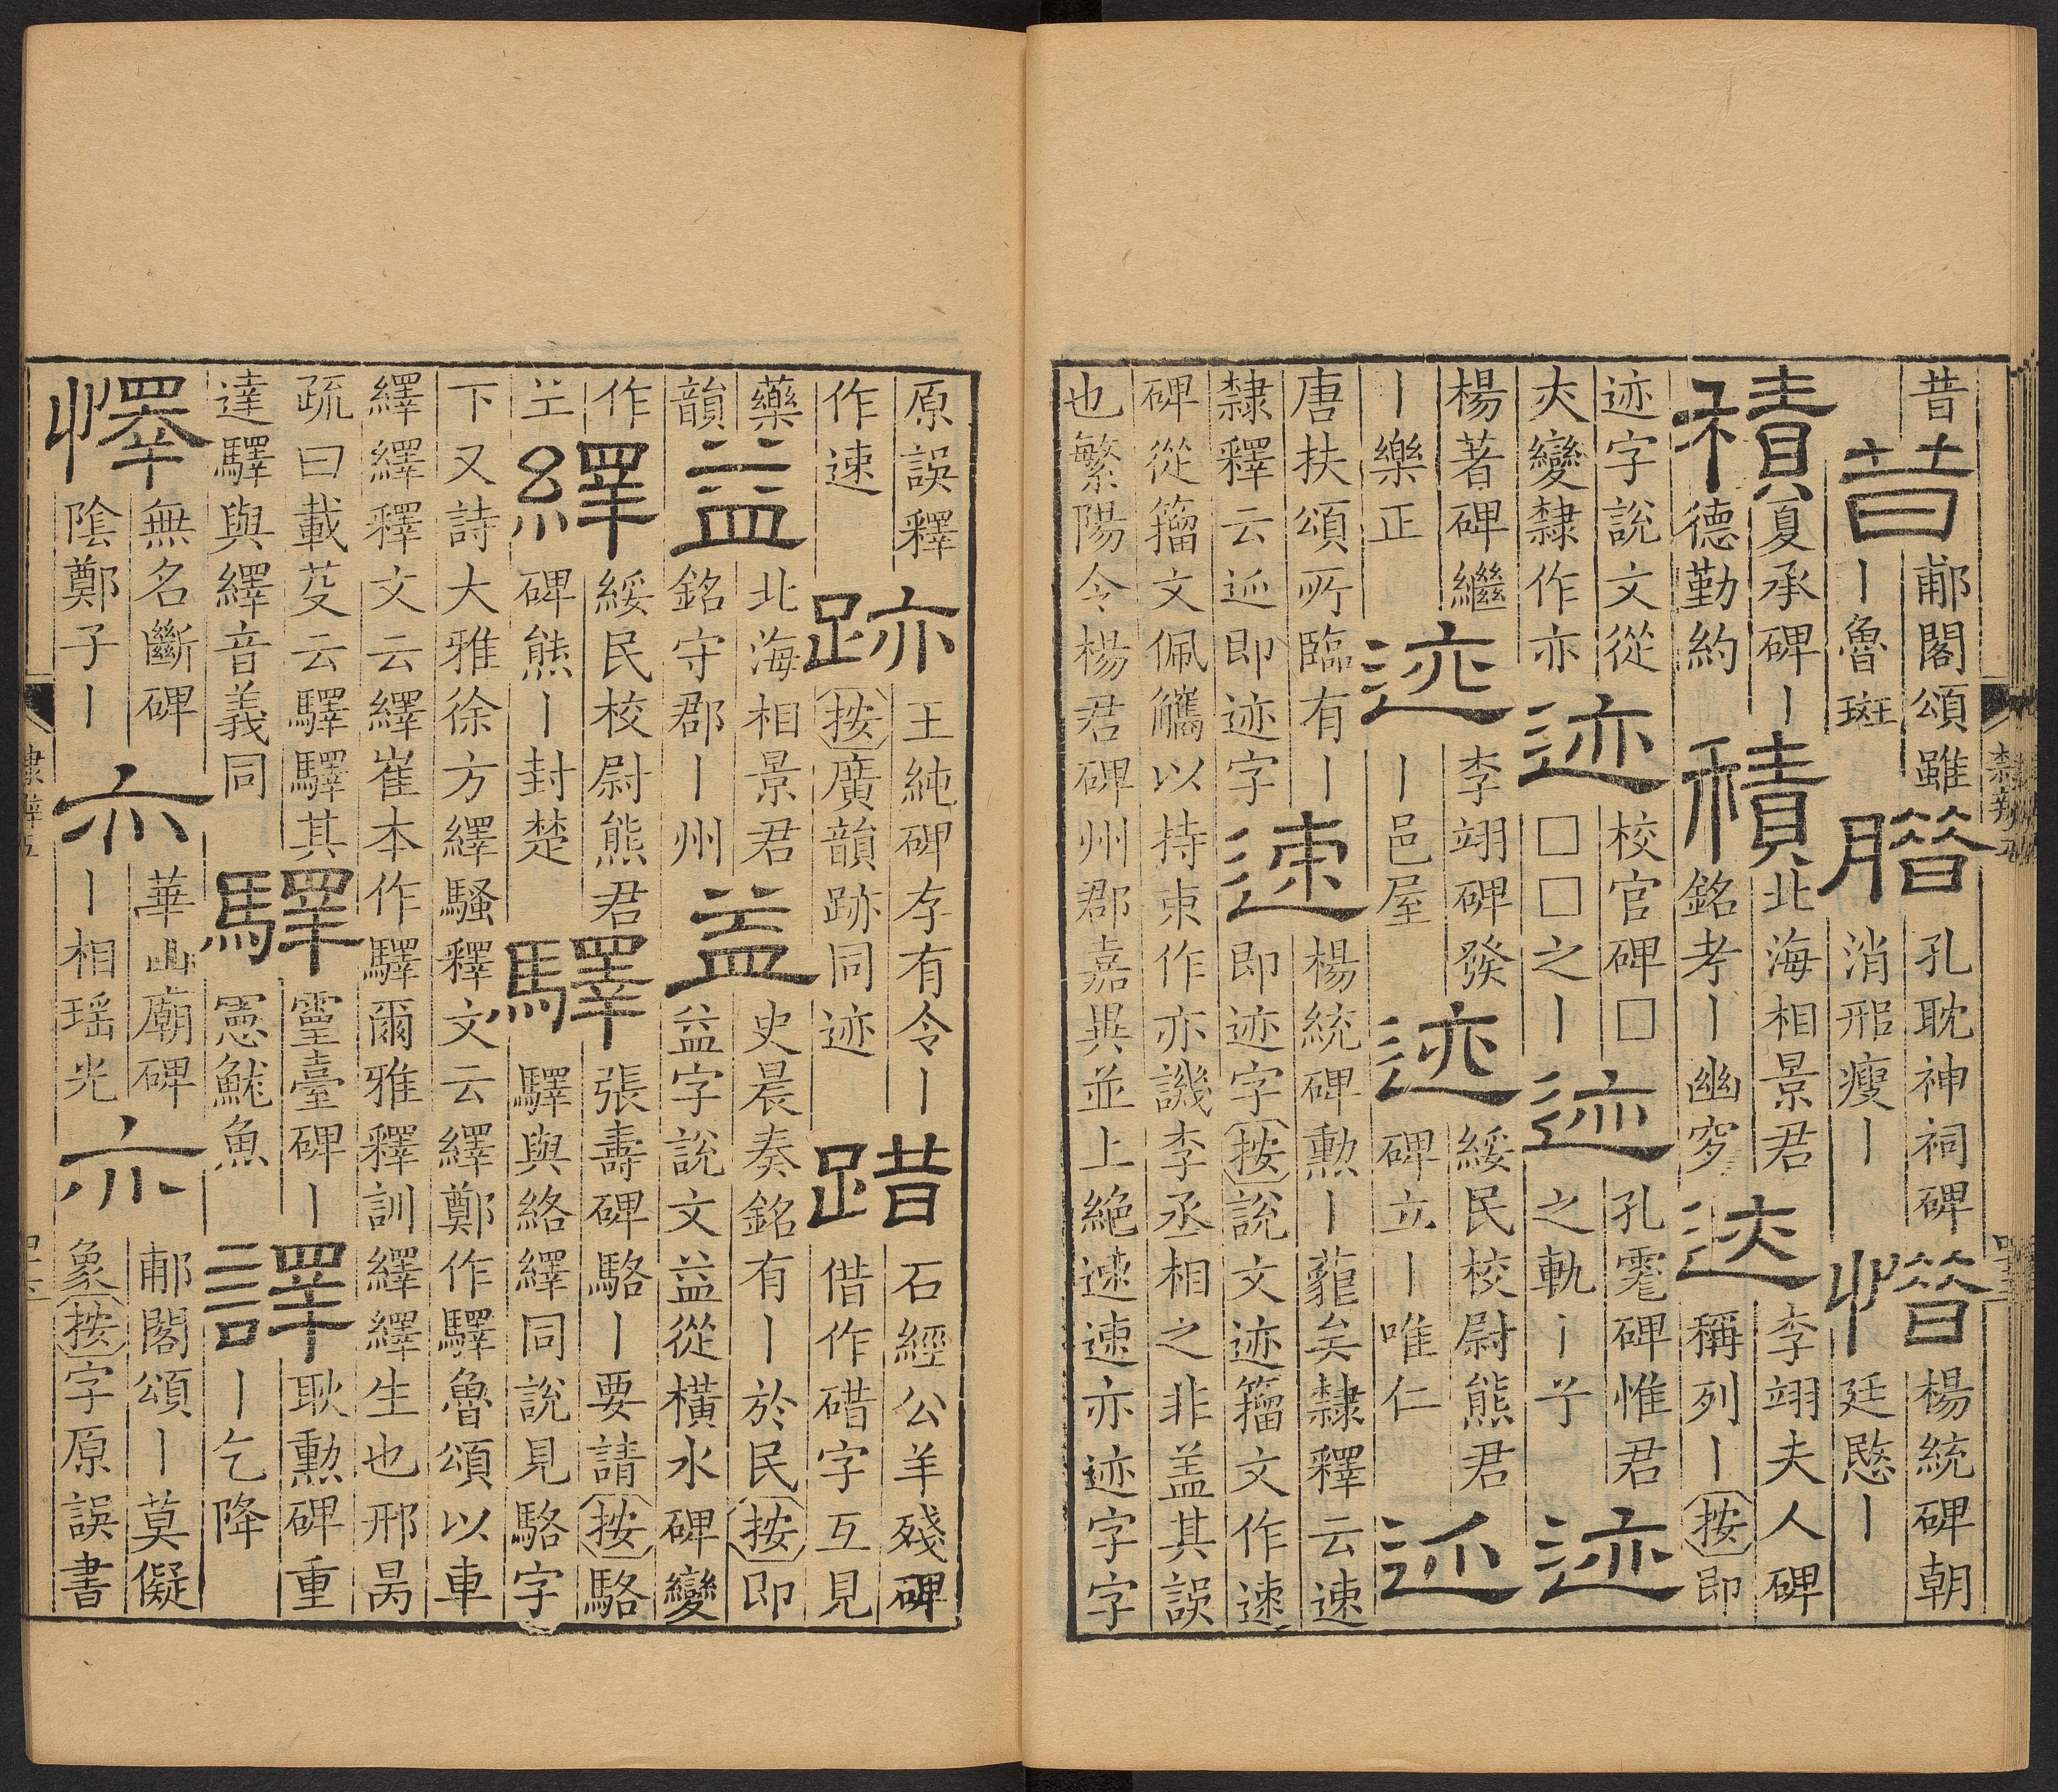 昔昔郙閣頌雖丨魯斑腊孔耽神祠碑消邢瘦丨惜楊統碑朝廷愍丨
積夏承碑丨德勤約積北海相景君銘考丨幽穸迹李翊夫人碑稱列丨按即
迹字說文從亦變隸作亦迹校官碑□□□之丨迹孔碑惟君之軌丨迹
楊著碑繼丨樂正迹李翊碑發丨邑屋迹綏民校尉熊君碑立丨唯仁迹
唐扶頌所臨有丨隸釋云迹即迹字速楊統碑勲丨蘢矣隸釋云速即迹字按說文迹籀文作速
碑從籀文佩觿以持束作亦譏李丞相之非盖其誤也繁陽令楊君碑州郡嘉異並上絶速速亦迹字字
隸辨五
原誤釋作速跡王純碑存有令丨按廣韻跡同迹踖石經公羊殘碑借作碏字互見
藥韻益北海相景君銘守郡丨州益史晨奏銘有丨於民按即益字說文益從橫水碑變
作𦍌繹綏民校尉熊君碑熊丨封楚驛張壽碑駱丨要請按駱驛與絡繹同說見駱字
下又詩大雅徐方繹騷釋文云繹鄭作驛魯頌以車繹繹釋文云繹崔本作驛爾雅釋訓繹繹生也邢昺
疏曰載芟云驛驛其達驛與繹音義同驛靈臺碑丨憲鮇魚譯耿勲碑重丨乞降
懌無名斷碑陰鄭子丨亦華山廟碑丨相瑶光亦郙閣頌丨莫儗象按字原誤書